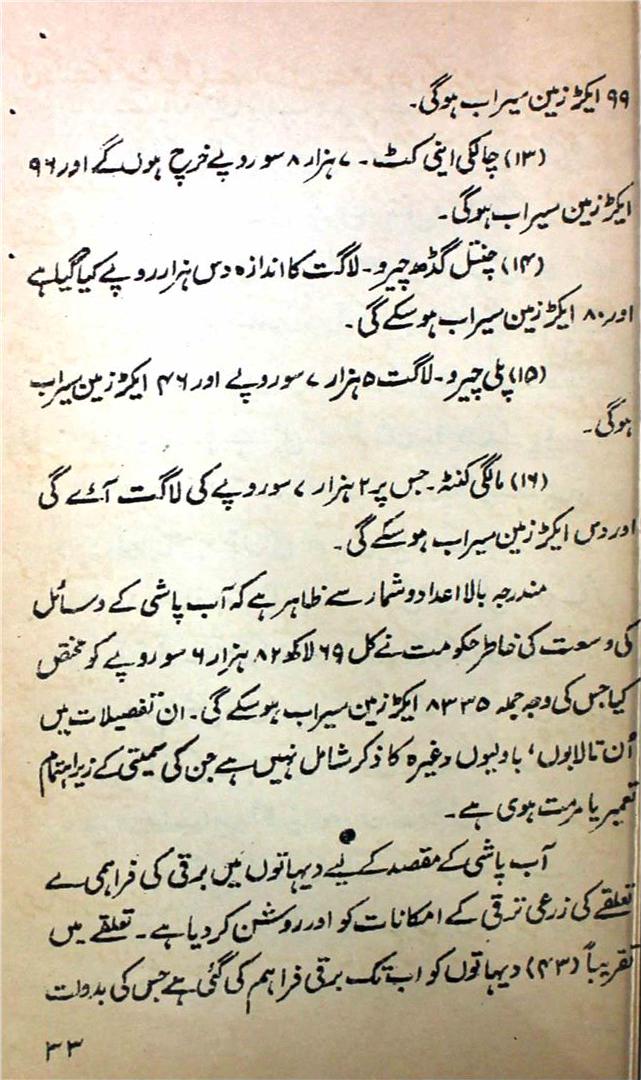 ۹۹ ایکڑ زمین سیراب ہوگی۔
(۱۳) چالکی اینی کٹ۔ ۷ ہزار ۸ سو روپے خرچ ہوں گے اور ۹۶
ایکڑ زمین سیراب ہوگی۔
(۱۴) چنتل گڈھ چیرو۔ لاگت کا اندازہ دس ہزار روپے کیا گیا ہے
اور ۸۰ ایکڑ زمین سیراب ہو سکے گی۔
(۱۵) پلی چیرو۔ لاگت ۵ ہزار ۷ سو روپے اور ۴۶ ایکڑ زمین سیراب
ہوگی۔
(۱۶) مالگی کنٹہ۔ جس پر ۲ ہزار ۷ سو روپے کی لاگت آئے گی
اور دس ایکڑ زمین سیراب ہو سکے گی۔
مندرجہ بالا اعداد و شمار سے ظاہر ہے کہ آب پاشی کے وسائل
کی وسعت کی خاطر حکومت نے کل ۶۹ لاکھ ۸۲ ہزار ۶ سو روپے کو مختص
کیا جس کی وجہ جملہ ۸۳۳۵ ایکڑ زمین سیراب ہو سکے گی۔ ان تفصیلات میں
اُن تالابوں، باولیوں وغیرہ کا ذکر شامل نہیں ہے جن کی سمیتی کے زیر اہتمام
تعمیر یا مرمت ہوی ہے۔
آب پاشی کے مقصد کے لیے دیہاتوں میں برقی کی فراہمی نے
تعلقے کی زرعی ترقی کے امکانات کو اور روشن کر دیا ہے۔ تعلقے میں
تقریباً (۴۳) دیہاتوں کو اب تک برقی فراہم کی گئی ہے جس کی بدولت
۳۳